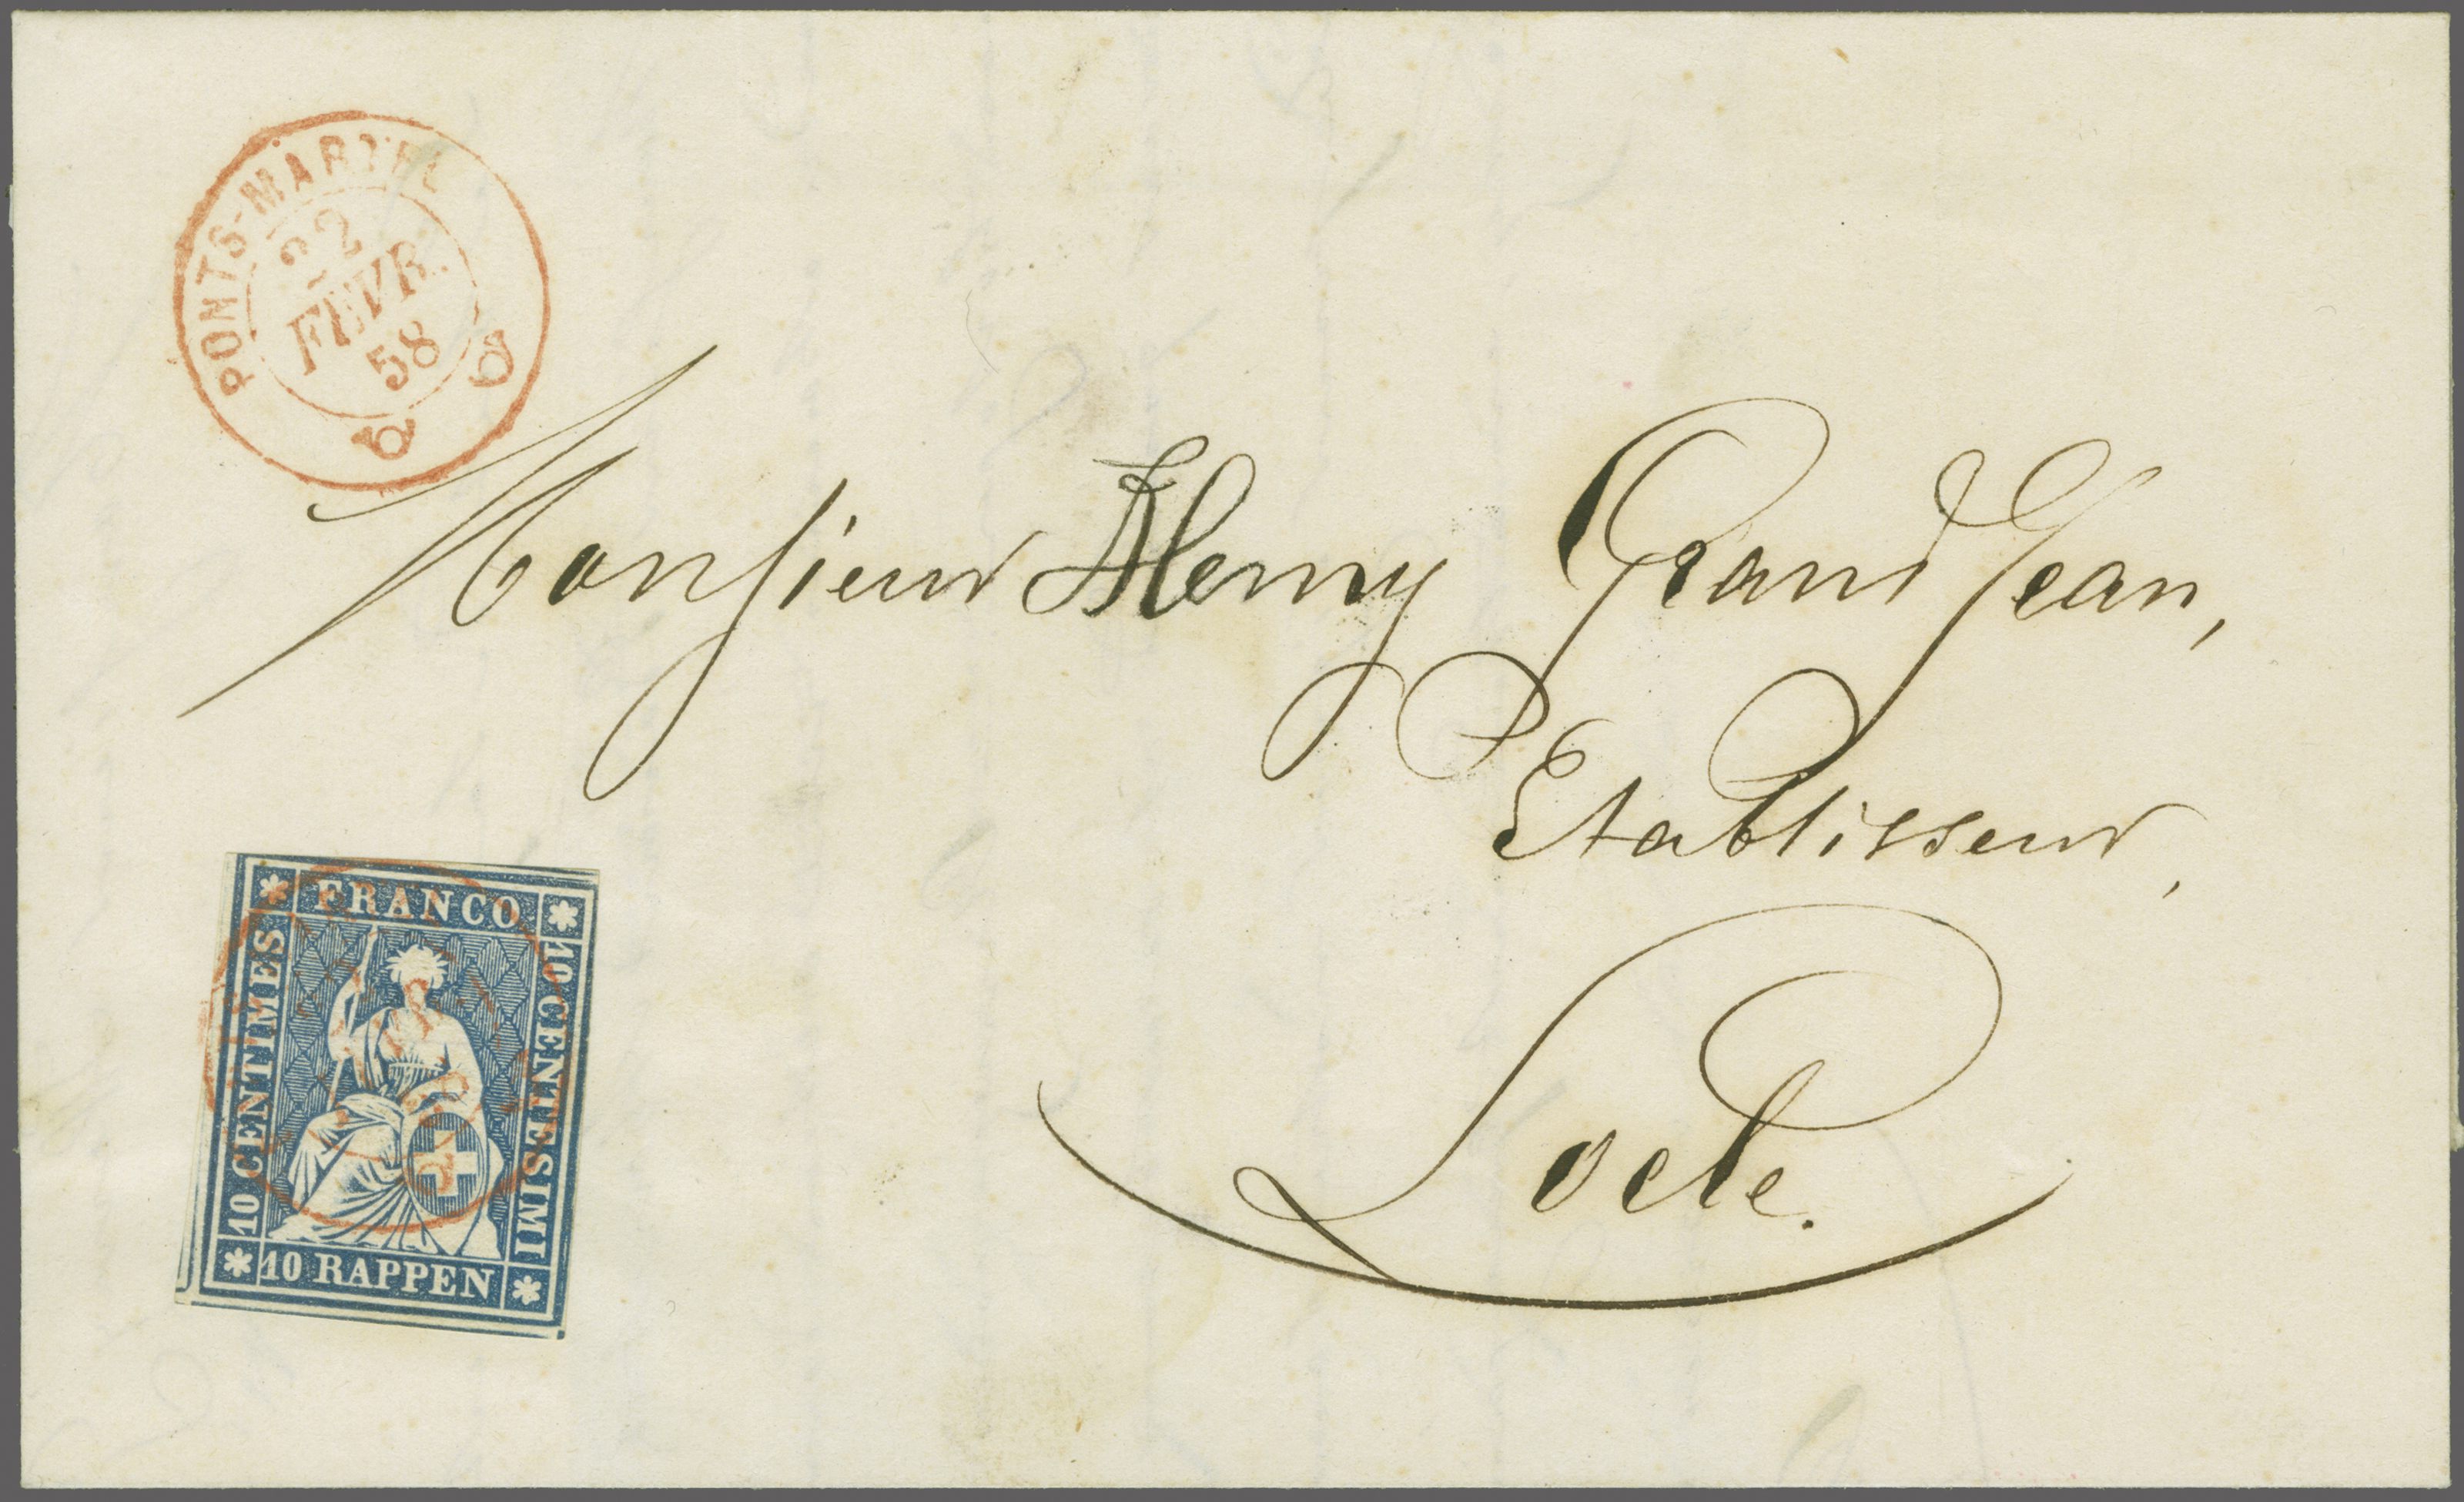 PONTS-MARTEL
22
FEVR.
58
Monsieur Henry GrandJean,
Etablisseur,
Locle.
FRANCO
10 CENTIMES
10 CENTESIMI
10 RAPPEN